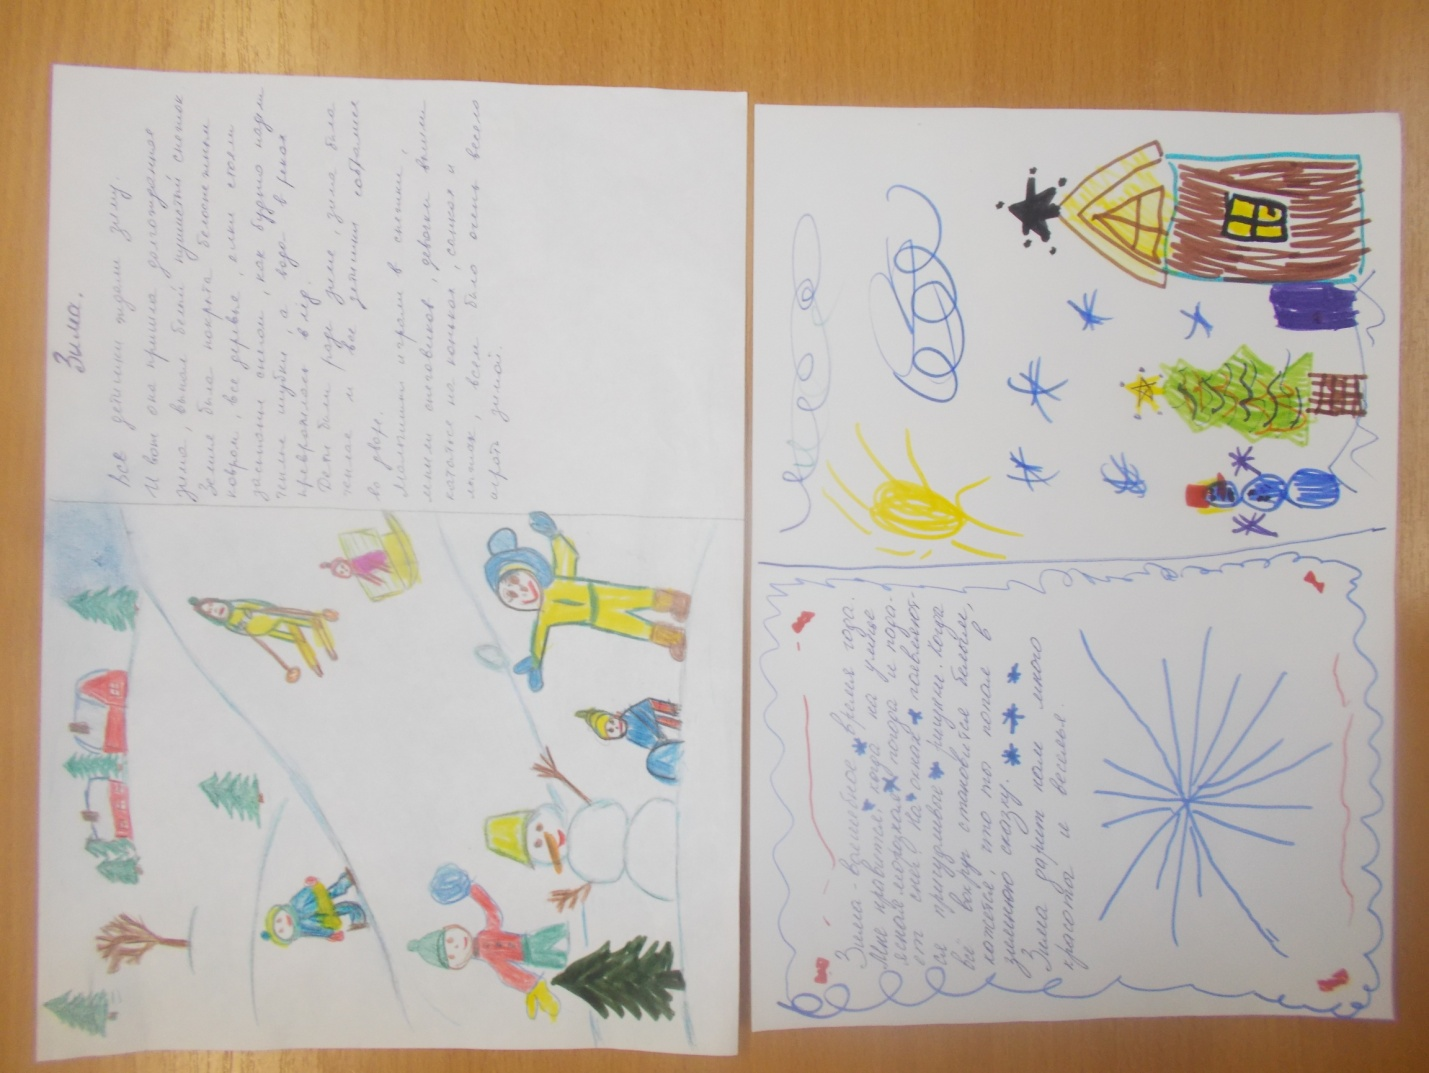 Зима.
Все детишки ждали зиму.
И вот она пришла долгожданная
зима, выпал белый пушистый снежок
Земля была покрыта белоснежным
ковром, все деревья, елки стояли
застланые снегом, как будто надели
теплые шубки, а вода в реках
превратилась в лёд.
Дети были рады зиме, зима была
теплая и все детишки собрались
во дворе.
Мальчишки играли в снежки,
лепили снеговиков, девочки вышли
кататься на коньках, санках и
лыжах, всем было очень весело
этой зимой.
Зима - волшебное время года.
Мне нравится, когда на улице
ясная морозная погода и пада-
ет снег. На окнах появляют-
ся причудливые рисунки. Когда
всё вокруг становится белым,
кажется, что ты попал в
зимнюю сказку.
Зима дарит нам много
красоты и веселья.